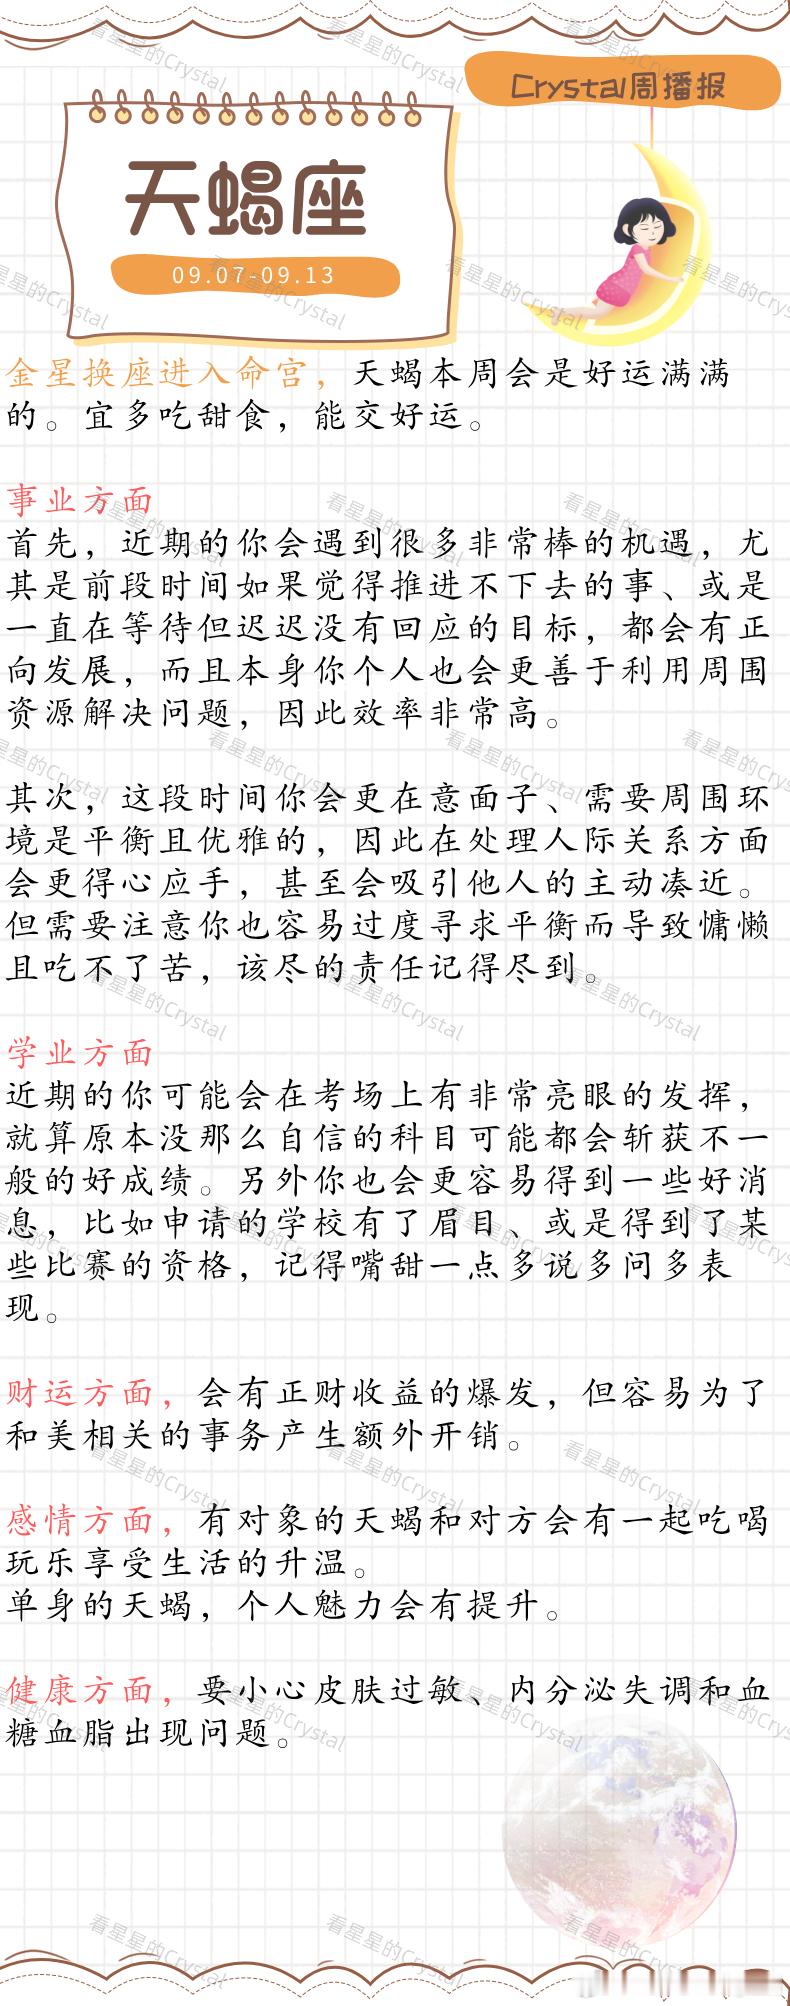 Crystal周播报
天蝎座
09.07-09.13
金星换座进入命宫，天蝎本周会是好运满满
的。宜多吃甜食，能交好运。
事业方面
首先，近期的你会遇到很多非常棒的机遇，尤
其是前段时间如果觉得推进不下去的事、或是
一直在等待但迟迟没有回应的目标，都会有正
向发展，而且本身你个人也会更善于利用周围
资源解决问题，因此效率非常高。
其次，这段时间你会更在意面子、需要周围环
境是平衡且优雅的，因此在处理人际关系方面
会更得心应手，甚至会吸引他人的主动凑近。
但需要注意你也容易过度寻求平衡而导致慵懒
且吃不了苦，该尽的责任记得尽到。
学业方面
近期的你可能会在考场上有非常亮眼的发挥，
就算原本没那么自信的科目可能都会斩获不一
般的好成绩。另外你也会更容易得到一些好消
息，比如申请的学校有了眉目、或是得到了某
些比赛的资格，记得嘴甜一点多说多问多表
现。
财运方面，会有正财收益的爆发，但容易为了
和美相关的事务产生额外开销。
感情方面，有对象的天蝎和对方会有一起吃喝
玩乐享受生活的升温。
单身的天蝎，个人魅力会有提升。
健康方面，要小心皮肤过敏、内分泌失调和血
糖血脂出现问题。
看星星的Crystal